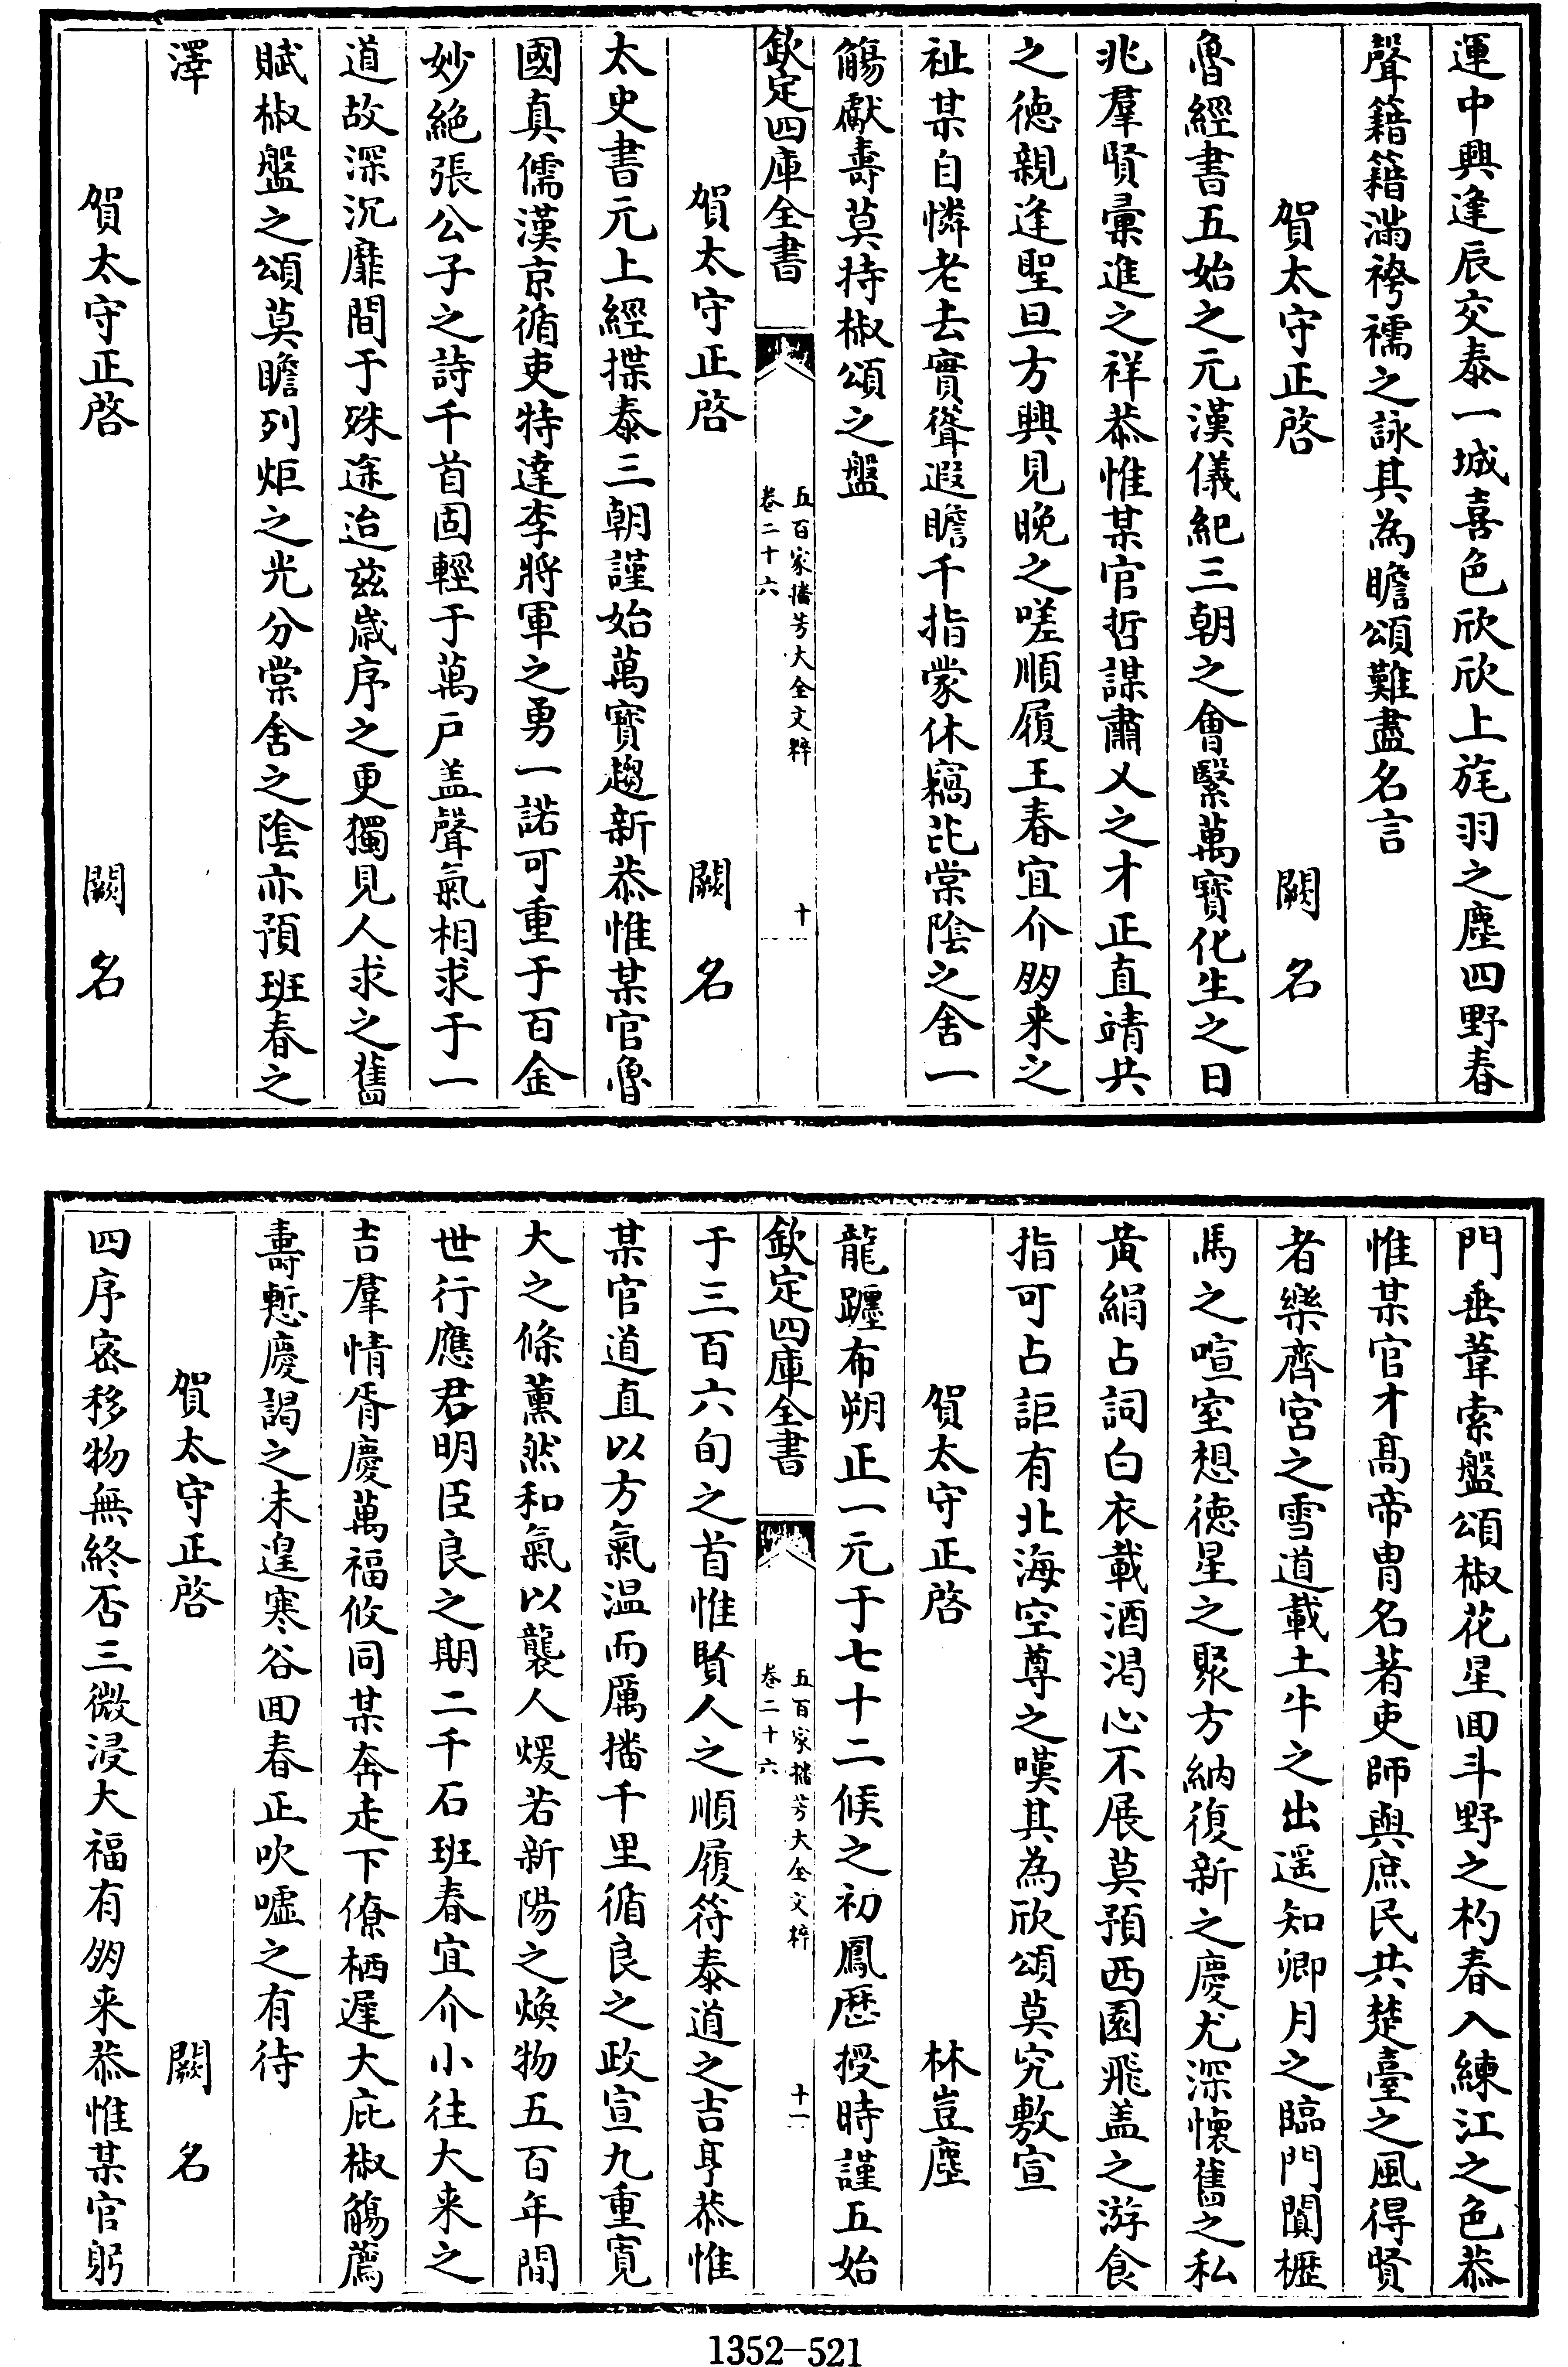 運中興逢辰交泰一城喜色欣欣上旄羽之塵四野春
聲籍籍滿袴襦之詠其為瞻頌難盡名言
賀太守正啓　闕名
魯經書五始之元漢儀紀三朝之會繄萬寶化生之日
兆羣賢彚進之祥恭惟某官哲謀肅乂之才正直靖共
之徳親逢聖旦方興見晚之嗟順履王春宜介朋来之
祉某自憐老去實聳遐瞻千指蒙休竊芘棠陰之舍一
觴獻壽莫持椒頌之盤
欽定四庫全書
五百家播芳大全文粹
卷二十六
十
賀太守正啓　闕名
太史書元上經揲泰三朝謹始萬寳趨新恭惟某官魯
國真儒漢京循吏特達李將軍之勇一諾可重于百金
妙絶張公子之詩千首固輕于萬戸盖聲氣相求于一
道故深沉靡間于殊途迨兹歳序之更獨見人求之舊
賦椒盤之頌莫瞻列炬之光分棠舍之陰亦預班春之
澤
賀太守正啓　闕名
門垂葦索盤頌椒花星回斗野之杓春入練江之色恭
惟某官才髙帝胄名著吏師與庶民共楚臺之風得賢
者樂齊宮之雪道載土牛之出遥知卿月之臨門闐櫪
馬之喧室想徳星之聚方納復新之慶尤深懐舊之私
黄絹占詞白衣載酒渇心不展莫預西園飛盖之游食
指可占詎有北海空尊之嘆其為欣頌莫究敷宣
賀太守正啓　林豈塵
龍躔布朔正一元于七十二候之初鳳歴授時謹五始
欽定四庫全書
五百家播芳大全文粹
卷二十六
十一
于三百六旬之首惟賢人之順履符泰道之吉亨恭惟
某官道直以方氣温而厲播千里循良之政宣九重寛
大之條薫然和氣以襲人煖若新陽之煥物五百年間
世行應君明臣良之期二千石班春宜介小往大来之
吉羣情胥慶萬福攸同某奔走下僚栖遲大庇椒觴薦
壽慙慶謁之未遑寒谷回春正吹噓之有待
賀太守正啓　闕名
四序宻移物無終否三微浸大福有朋来恭惟某官躬
1352-521